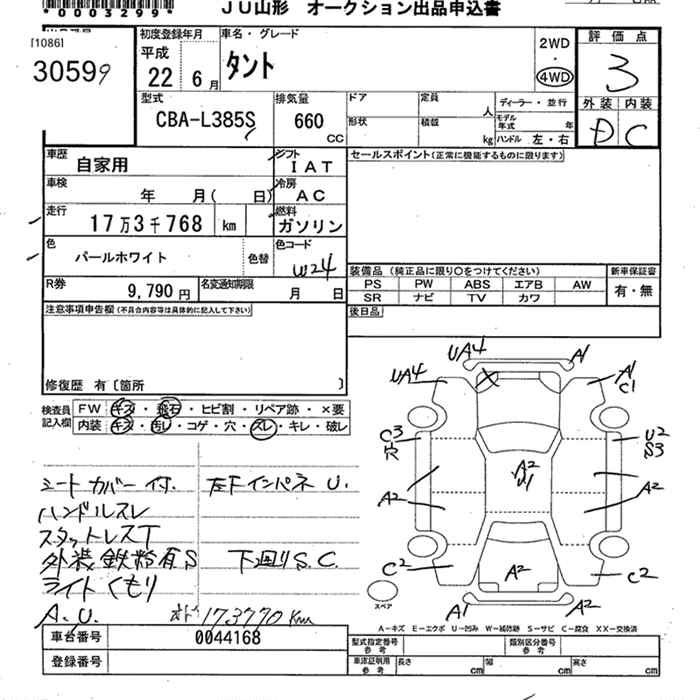 *0003299*
JU山形 オークション出品申込書
[1086]
30599
初度登録年月
平成
22年 6月
車名・グレード
タント
2WD
・
4WD
評価点
3
外装 内装
D C
型式
CBA-L385S
排気量
660
cc
ドア
定員
人
形状
積載
kg
ディーラー・並行
モデル年式 年
ハンドル 左・右
車歴
自家用
シフト
IAT
車検
年 月( 日)
冷房
AC
走行
17万3千768 km
燃料
ガソリン
色
パールホワイト
色替
色コード
W24
R券
9,790円
名変通知期限
月 日
セールスポイント(正常に機能するものに限ります)
装備品(純正品に限り○をつけてください)
PS PW ABS エアB AW
SR ナビ TV カワ
新車保証書
有・無
後日品
注意事項申告欄(不具合内容等は具体的に記入して下さい)
修復歴 有〔箇所 〕
検査員記入欄
FW キズ・飛石・ヒビ割・リペア跡・×要
内装 キズ・汚レ・コゲ・穴・スレ・キレ・破レ
シートカバー付. 左Fインパネ U.
ハンドルスレ
スタットレスT
外装鉄粉有S 下廻りS.C.
ライトくもり
A.U. オド 173770 Km
UA4
A1
UA4
A1
C1
C3
穴
U2
S3
A2
U1
A2
A2
C2
A2
C2
A1
A2
スペア
A－キズ E－エクボ U－凹み W－補修跡 S－サビ C－腐食 XX－交換済
車台番号 0044168
登録番号
型式指定番号
参考
類別区分番号
参考
車庫証明用
参考
長さ cm
幅 cm
高さ cm